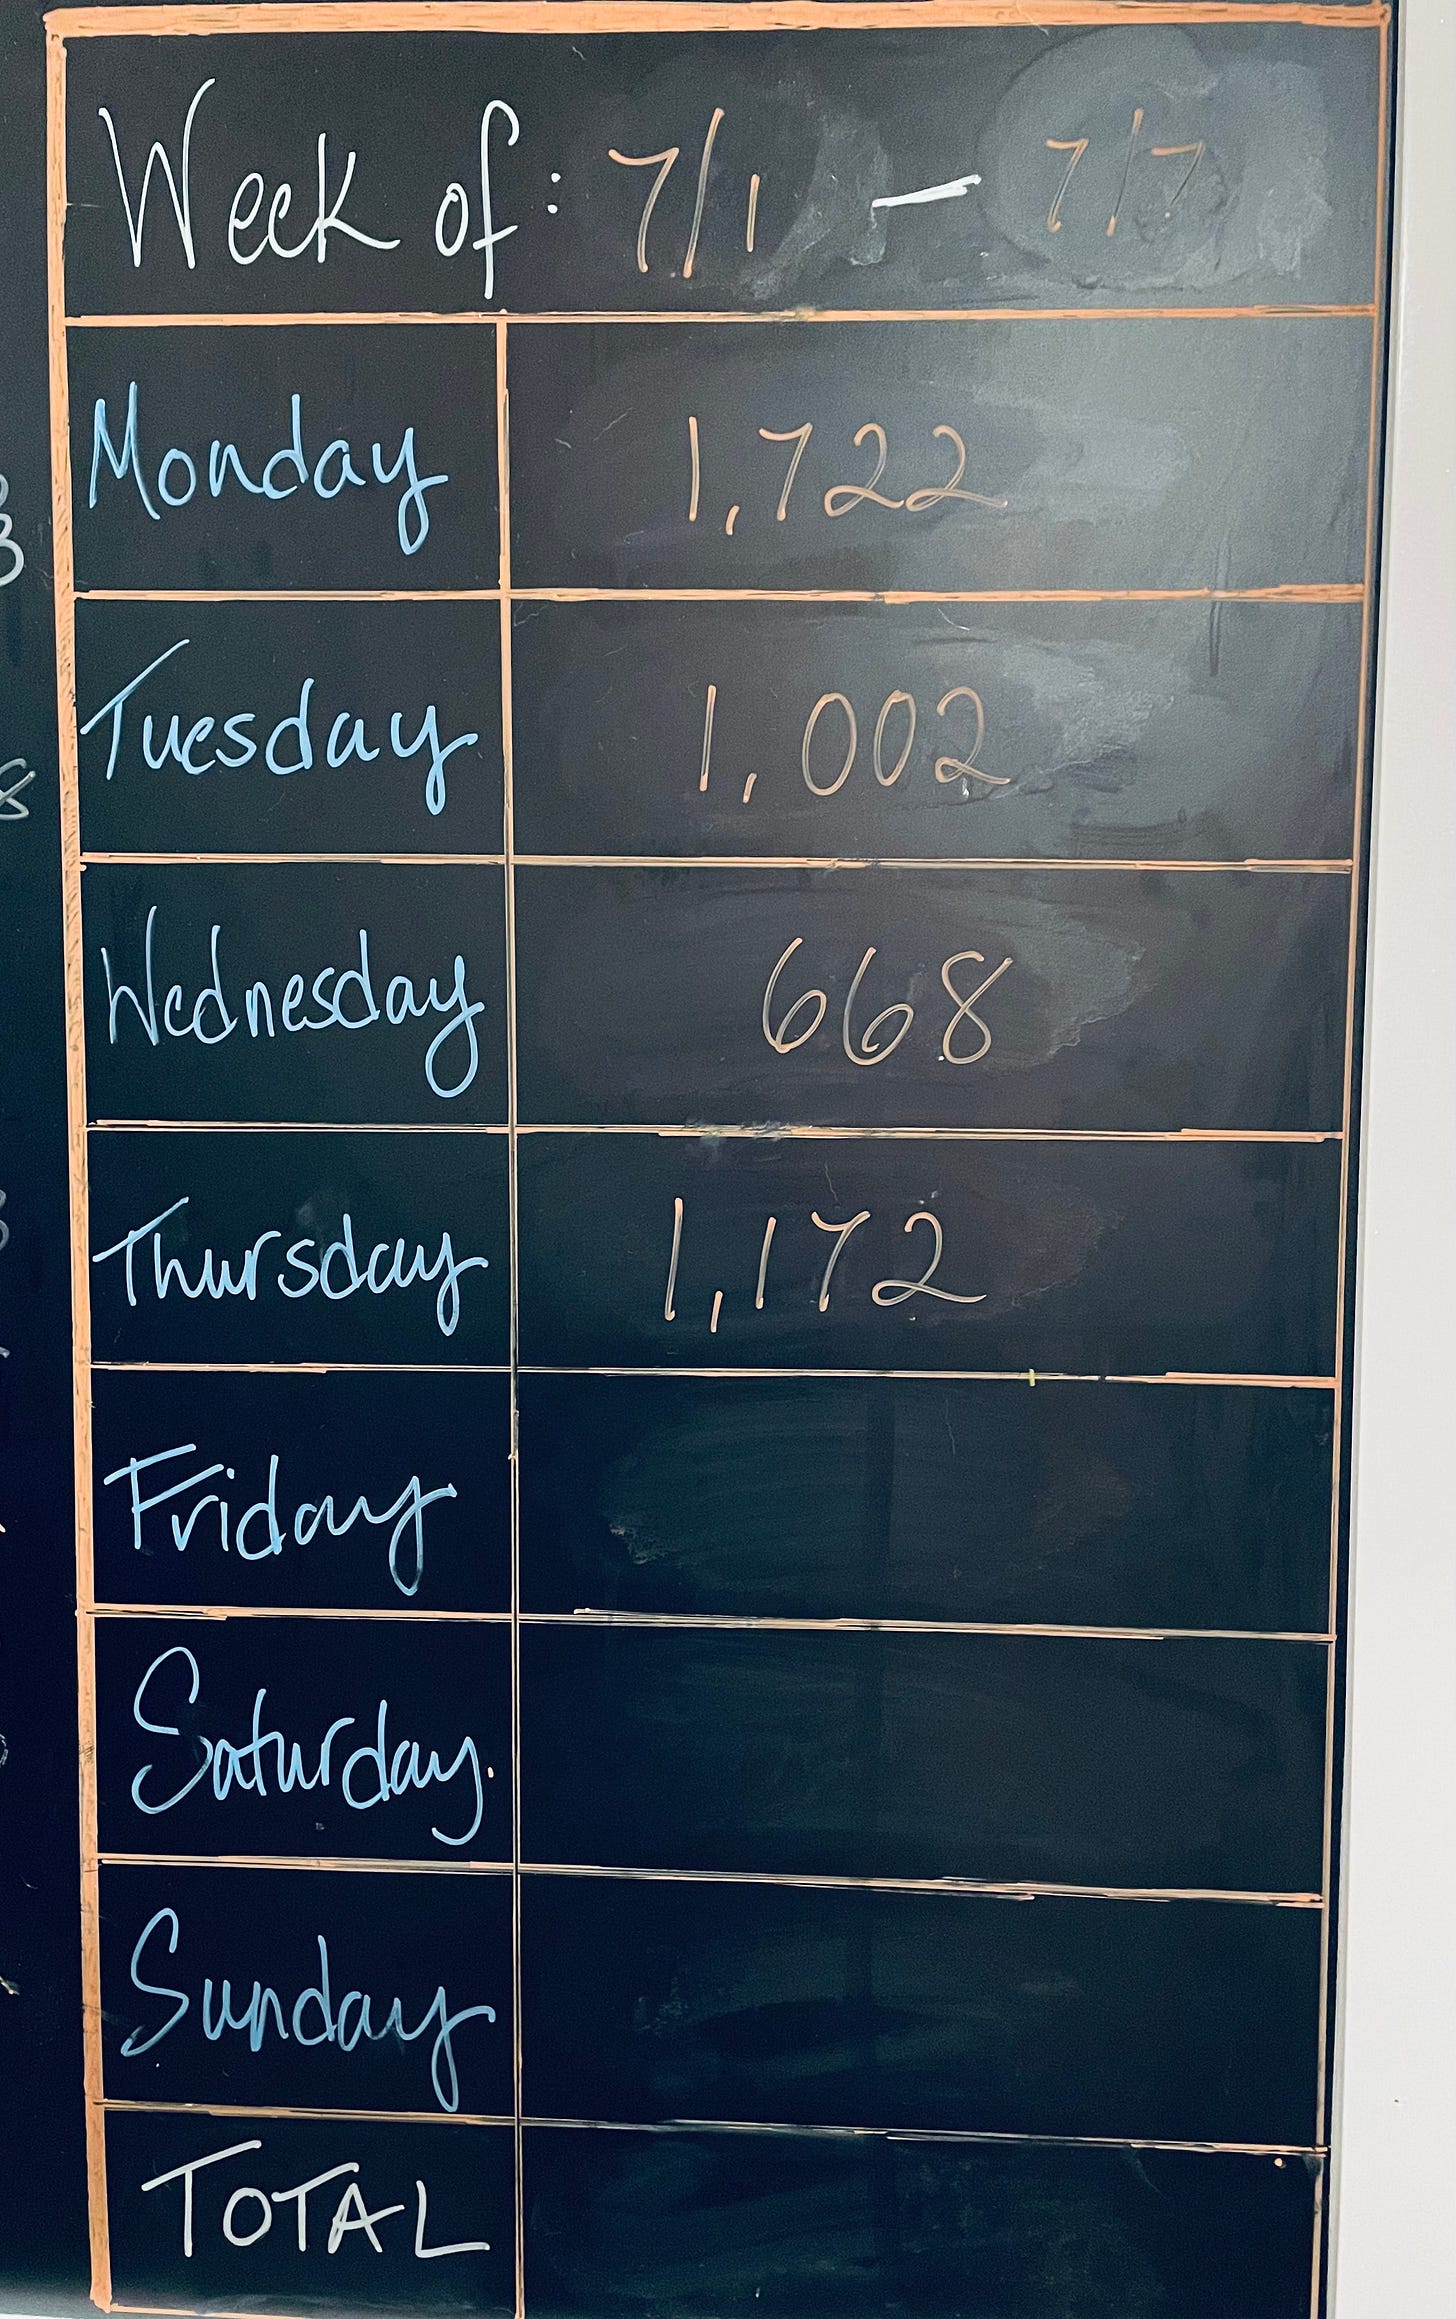 Week of: 7/1 — 7/7
Monday 1,722
Tuesday 1,002
Wednesday 668
Thursday 1,172
Friday
Saturday
Sunday
TOTAL